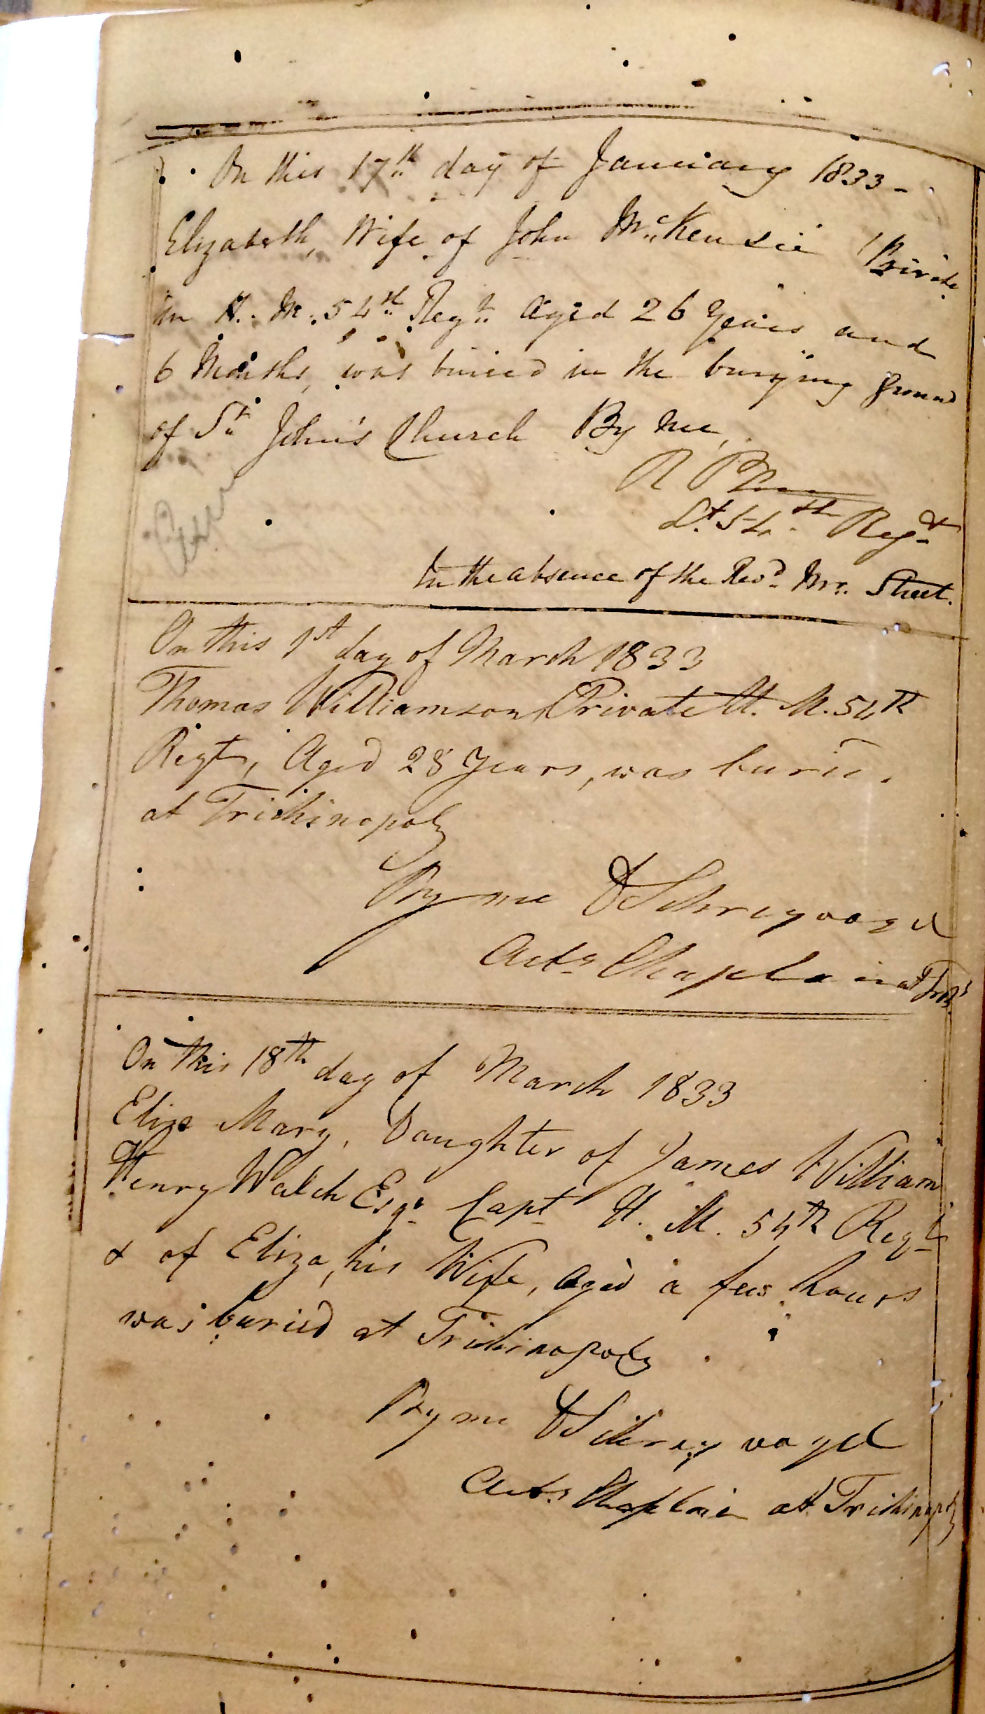 On this 17th day of January 1833 -
Elizabeth, Wife of John McKensie Private
in H. M. 54th Regt. Aged 26 Years and
6 Months, was buried in the burying ground
of St. John's Church By me,
Lt. 54th Regt
In the absence of the Revd. Mr. Street.
On this 1st day of March 1833
Thomas Williamson, Private H. M. 54th
Regt, Aged 28 Years, was buried
at Trichinopoly
By me D Schreyvogel
Actg Chaplain at
On this 18th day of March 1833
Eliza Mary, Daughter of James William
Henry Walch Esqr Capt H. M. 54th Regt
& of Eliza, his Wife, aged a few hours
was buried at Trichinopoly.
By me D Schreyvogel
Actg Chaplain at Trichinopoly